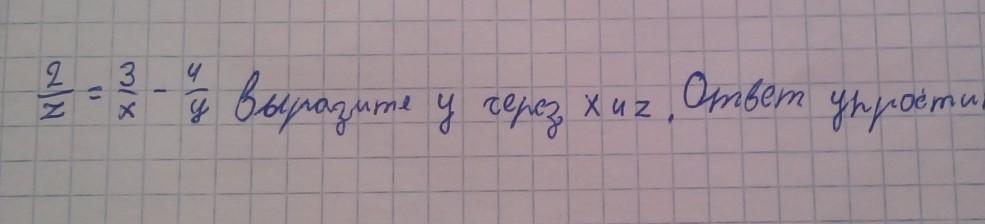 2/z = 3/x - 4/y Выразите y через x и z. Ответ упрости